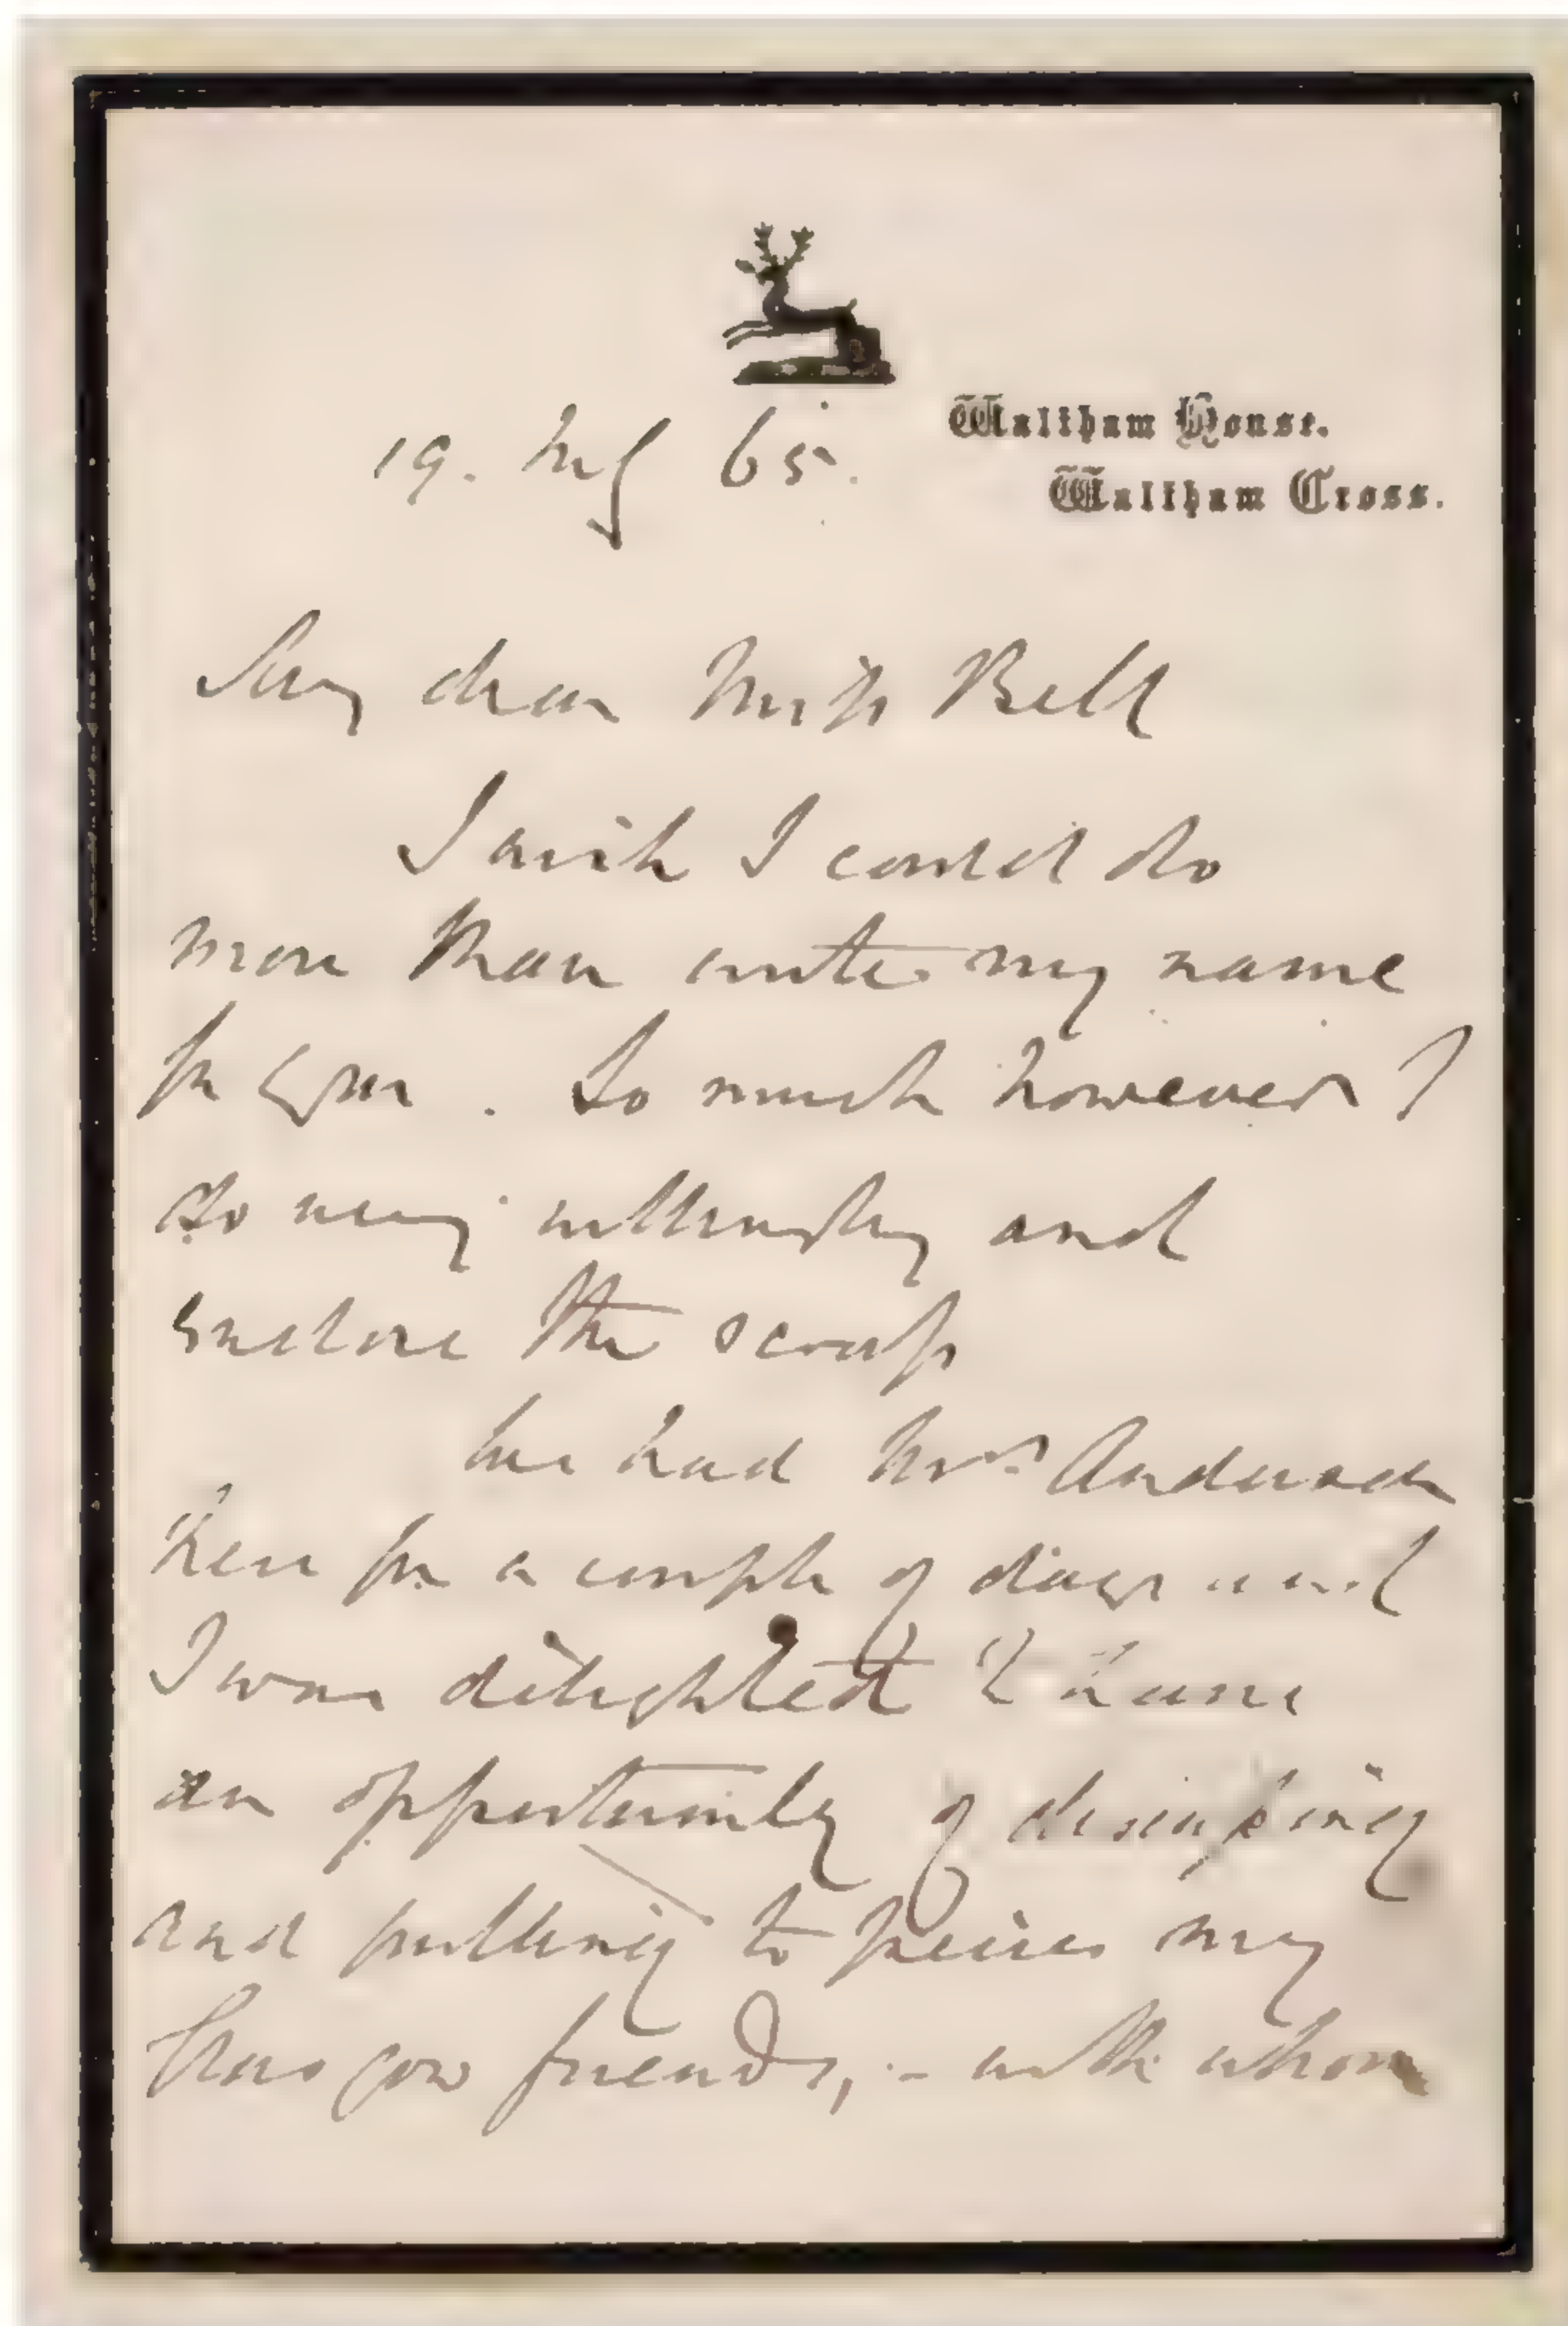 Waltham House.
19. 65.
Waltham Cross.
My dear Miss Bell
I wish I could do
more than write my name
for you. So much however I
do very willingly and
enclose the scrap
We had Mrs. Anderson
here for a couple of days and
I was delighted to have
an opportunity of
and pulling to pieces my
Glasgow friends, - with whom